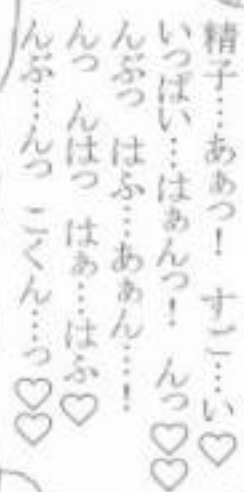 精子…あぁっ！　すご…い♡
いっぱい…はぁんっ！　んっ♡♡
んぶっ　はふ…あぁん…！
んっ　んはっ　はぁ…はふ♡
んぶ…んっ　こくん…っ♡♡